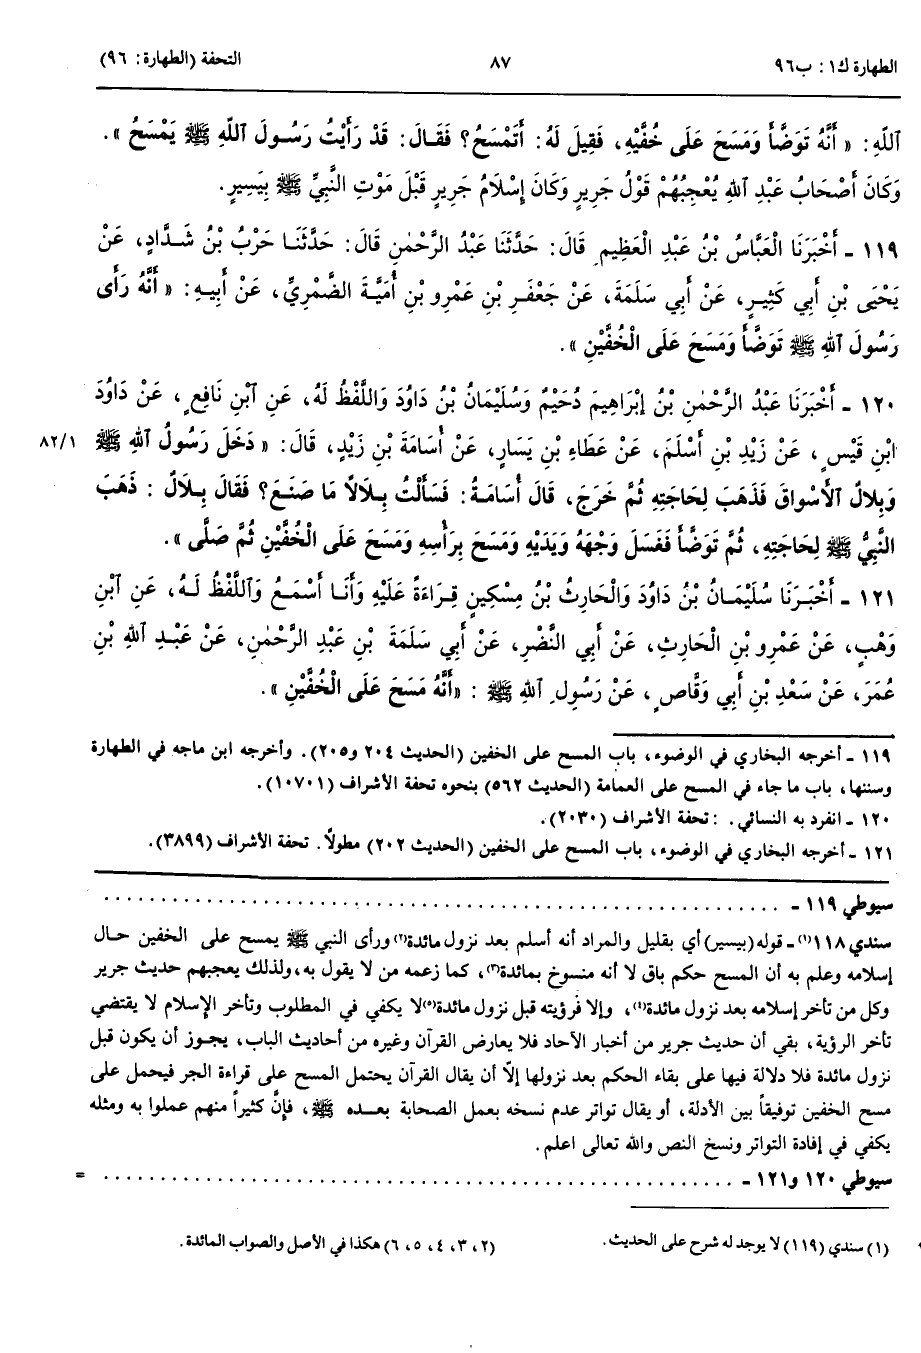 الطهارة ك١ : ب٩٦
٨٧
التحفة (الطهارة : ٩٦)
ٱللهِ : « أَنَّهُ تَوَضَّأَ وَمَسَحَ عَلَى خُفَّيْهِ، فَقِيلَ لَهُ : أَتَمْسَحُ؟ فَقَالَ : قَدْ رَأَيْتُ رَسُولَ ٱللهِ ﷺ يَمْسَحُ » .
وَكَانَ أَصْحَابُ عَبْدِ ٱللهِ يُعْجِبُهُمْ قَوْلُ جَرِيرٍ وَكَانَ إِسْلَامُ جَرِيرٍ قَبْلَ مَوْتِ النَّبِيِّ ﷺ بِيَسِيرٍ .
١١٩ - أَخْبَرَنَا الْعَبَّاسُ بْنُ عَبْدِ الْعَظِيمِ قَالَ : حَدَّثَنَا عَبْدُ الرَّحْمٰنِ قَالَ : حَدَّثَنَا حَرْبُ بْنُ شَدَّادٍ، عَنْ
يَحْيَى بْنِ أَبِي كَثِيرٍ، عَنْ أَبِي سَلَمَةَ، عَنْ جَعْفَرِ بْنِ عَمْرِو بْنِ أُمَيَّةَ الضَّمْرِيِّ، عَنْ أَبِيهِ : « أَنَّهُ رَأَى
رَسُولَ ٱللهِ ﷺ تَوَضَّأَ وَمَسَحَ عَلَى الْخُفَّيْنِ » .
١٢٠ - أَخْبَرَنَا عَبْدُ الرَّحْمٰنِ بْنُ إِبْرَاهِيمَ دُحَيْمٌ وَسُلَيْمَانُ بْنُ دَاوُدَ وَاللَّفْظُ لَهُ، عَنِ ٱبْنِ نَافِعٍ، عَنْ دَاوُدَ
ابْنِ قَيْسٍ، عَنْ زَيْدِ بْنِ أَسْلَمَ، عَنْ عَطَاءِ بْنِ يَسَارٍ، عَنْ أُسَامَةَ بْنِ زَيْدٍ، قَالَ : « دَخَلَ رَسُولُ ٱللهِ ﷺ
٨٢/١
وَبِلَالٌ ٱلْأَسْوَاقَ فَذَهَبَ لِحَاجَتِهِ ثُمَّ خَرَجَ، قَالَ أُسَامَةُ : فَسَأَلْتُ بِلَالًا مَا صَنَعَ؟ فَقَالَ بِلَالٌ : ذَهَبَ
النَّبِيُّ ﷺ لِحَاجَتِهِ، ثُمَّ تَوَضَّأَ فَغَسَلَ وَجْهَهُ وَيَدَيْهِ وَمَسَحَ بِرَأْسِهِ وَمَسَحَ عَلَى الْخُفَّيْنِ ثُمَّ صَلَّى » .
١٢١ - أَخْبَرَنَا سُلَيْمَانُ بْنُ دَاوُدَ وَالْحَارِثُ بْنُ مِسْكِينٍ قِرَاءَةً عَلَيْهِ وَأَنَا أَسْمَعُ وَٱللَّفْظُ لَهُ، عَنِ ٱبْنِ
وَهْبٍ، عَنْ عَمْرِو بْنِ الْحَارِثِ، عَنْ أَبِي النَّضْرِ، عَنْ أَبِي سَلَمَةَ بْنِ عَبْدِ الرَّحْمٰنِ، عَنْ عَبْدِ ٱللهِ بْنِ
عُمَرَ، عَنْ سَعْدِ بْنِ أَبِي وَقَّاصٍ، عَنْ رَسُولِ ٱللهِ ﷺ : «أَنَّهُ مَسَحَ عَلَى الْخُفَّيْنِ » .
١١٩ - أخرجه البخاري في الوضوء، باب المسح على الخفين (الحديث ٢٠٤ و٢٠٥). وأخرجه ابن ماجه في الطهارة
وسننها، باب ما جاء في المسح على العمامة (الحديث ٥٦٢) بنحوه تحفة الأشراف (١٠٧٠١).
١٢٠ - انفرد به النسائي. : تحفة الأشراف (٢٠٣٠).
١٢١ - أخرجه البخاري في الوضوء، باب المسح على الخفين (الحديث ٢٠٢) مطولاً. تحفة الأشراف (٣٨٩٩).
سيوطي ١١٩ - . . . . . . . . . . . . . . . . . . . .
سندي ١١٨(١) - قوله (بيسير) أي بقليل والمراد أنه أسلم بعد نزول مائدة(٢) ورأى النبي ﷺ يمسح على الخفين حال
إسلامه وعلم به أن المسح حكم باق لا أنه منسوخ بمائدة(٣)، كما زعمه من لا يقول به، ولذلك يعجبهم حديث جرير
وكل من تأخر إسلامه بعد نزول مائدة(٤)، وإلا فرؤيته قبل نزول مائدة(٥) لا يكفي في المطلوب وتأخر الإسلام لا يقتضي
تأخر الرؤية، بقي أن حديث جرير من أخبار الآحاد فلا يعارض القرآن وغيره من أحاديث الباب، يجوز أن يكون قبل
نزول مائدة فلا دلالة فيها على بقاء الحكم بعد نزولها إلاّ أن يقال القرآن يحتمل المسح على قراءة الجر فيحمل على
مسح الخفين توفيقاً بين الأدلة، أو يقال تواتر عدم نسخه بعمل الصحابة بعده ﷺ، فإنَّ كثيراً منهم عملوا به ومثله
يكفي في إفادة التواتر ونسخ النص والله تعالى اعلم.
سيوطي ١٢٠ و١٢١ - . . . . . . . . . . . . . . . . . . . . =
(١) سندي (١١٩) لا يوجد له شرح على الحديث.
(٢، ٣، ٤، ٥، ٦) هكذا في الأصل والصواب المائدة.